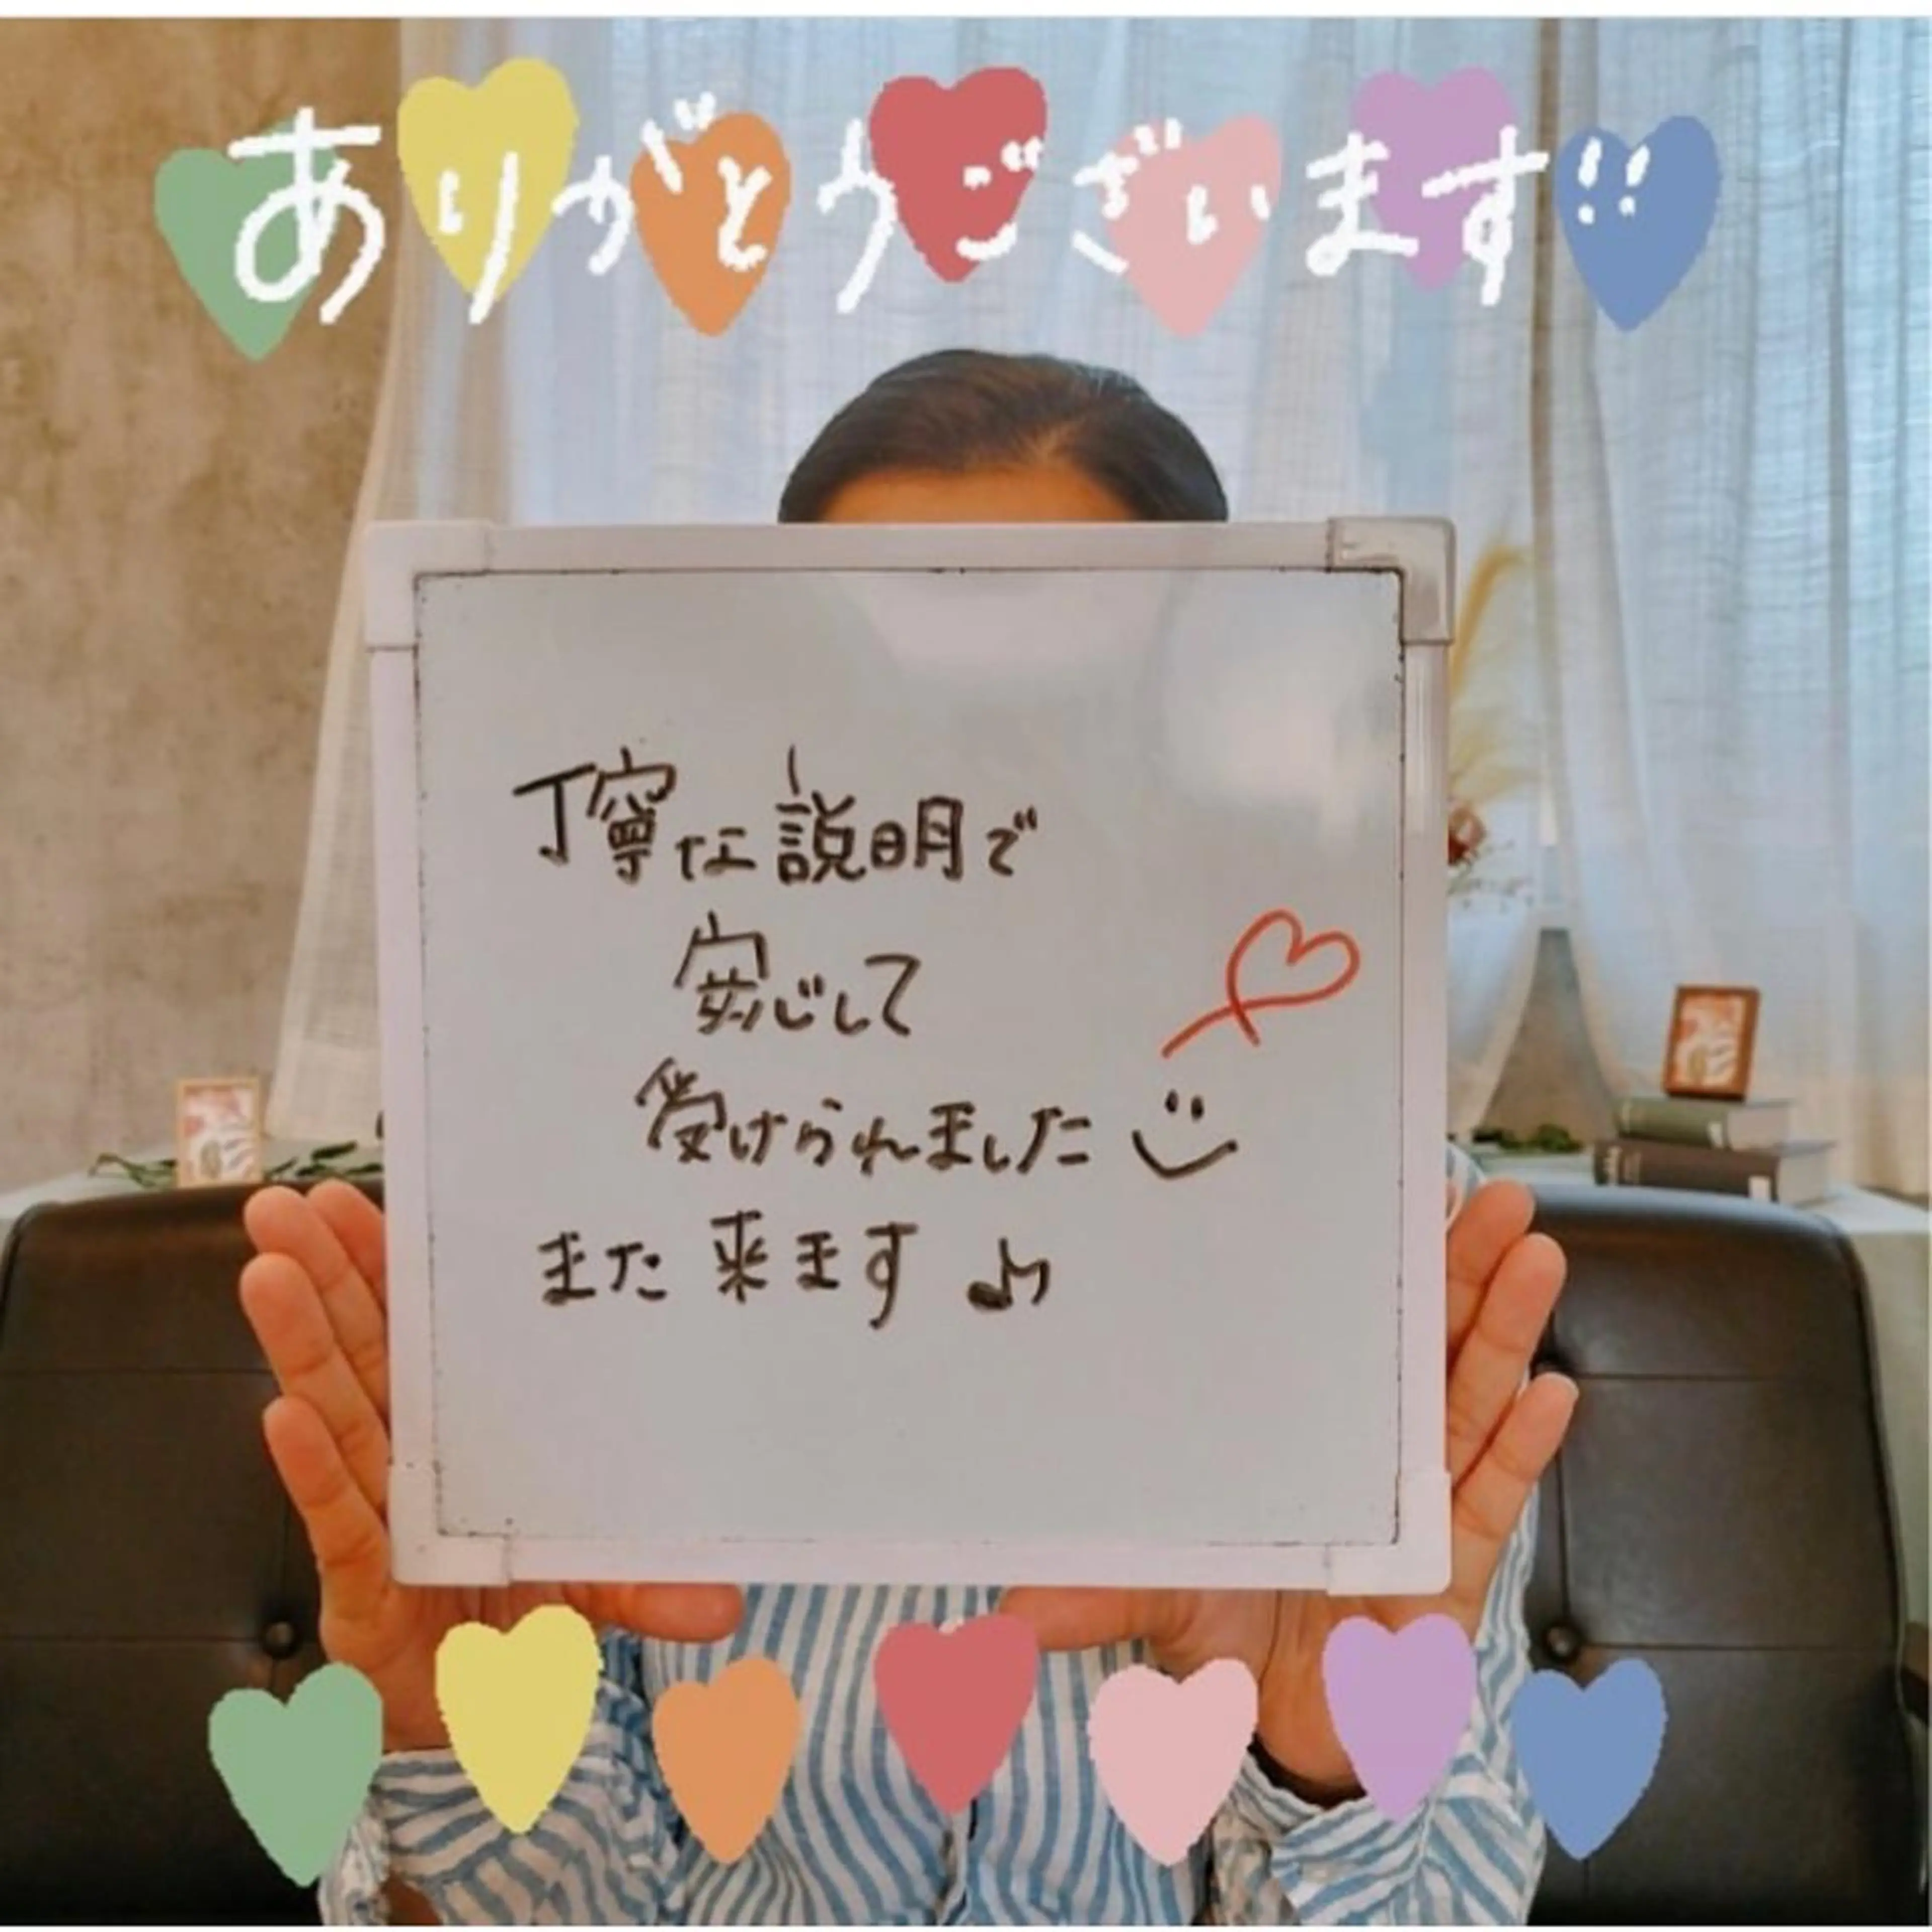 ありがとうございます!!
丁寧な説明で
安心して
受けられました
また来ます♪